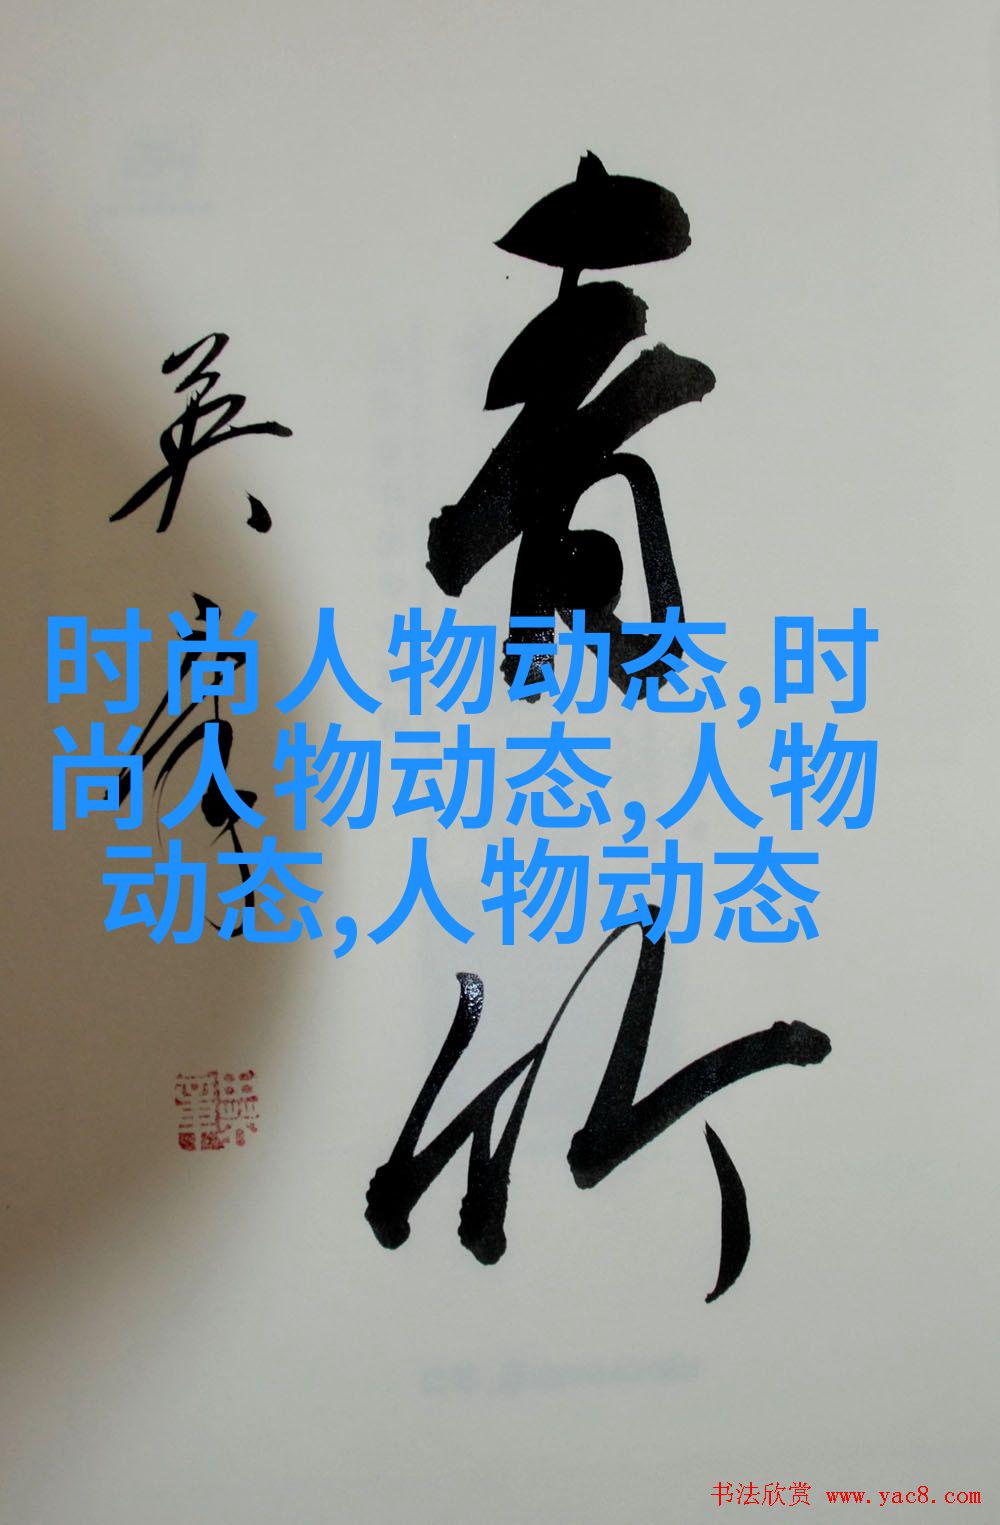 青竹
英彦
时尚人物动态,时
尚人物动态,人物
动态,人物动态
书法欣赏 www.yac8.com